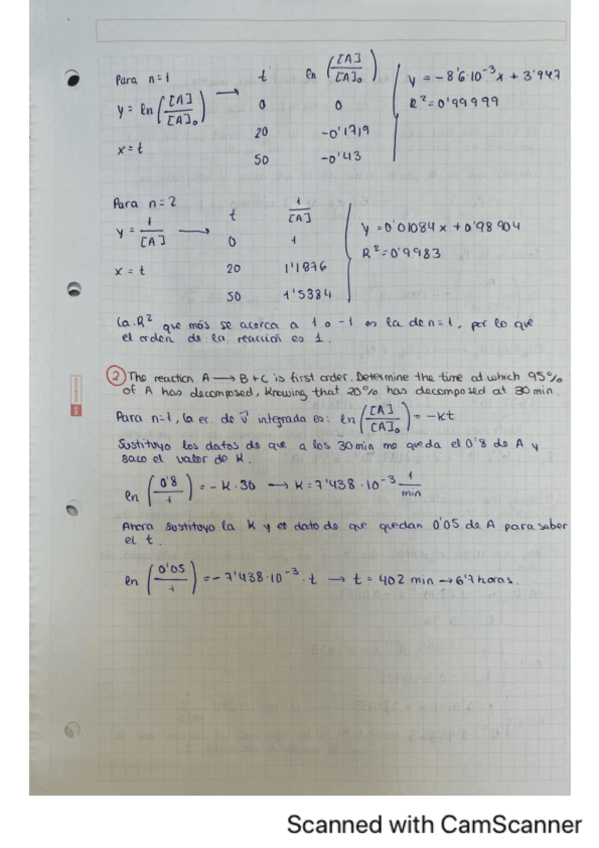 Para n=1 t ln([A]/[A]₀) y = -8'6·10⁻³x + 3'947
y = ln([A]/[A]₀) → 0 0 R² = 0'99999
x = t 20 -0'1719
50 -0'43
Para n=2 t 1/[A]
y = 1/[A] → 0 1 y = 0'01084x + 0'98904
x = t 20 1'1876 R² = 0'9983
50 1'5384
La R² que más se acerca a 1 o -1 es la de n=1, por lo que
el orden de la reacción es 1.
② The reaction A → B+C is first order. Determine the time at which 95%
of A has decomposed, knowing that 20% has decomposed at 30 min.
Para n=1, la ec. de v integrada es: ln([A]/[A]₀) = -kt
Sustituyo los datos de que a los 30 min me queda el 0'8 de A y
saco el valor de K.
ln(0'8/1) = -K·30 → K = 7'438·10⁻³ 1/min
Ahora sustituyo la K y el dato de que quedan 0'05 de A para saber
el t.
ln(0'05/1) = -7'438·10⁻³·t → t = 402 min → 6'7 horas.
Scanned with CamScanner